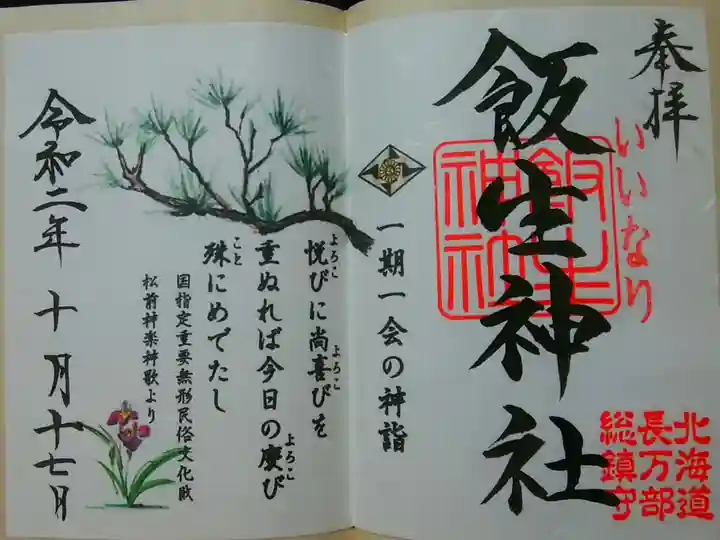 奉拝
いいなり
飯生神社
飯生神社
北海道
長万部
総鎮守
一期一会の神詣
悦びに尚喜びを
よろこ
よろこ
重ぬれば今日の慶び
よろこ
殊にめでたし
こと
国指定重要無形民俗文化財
松前神楽神歌より
令和二年 十月十七日